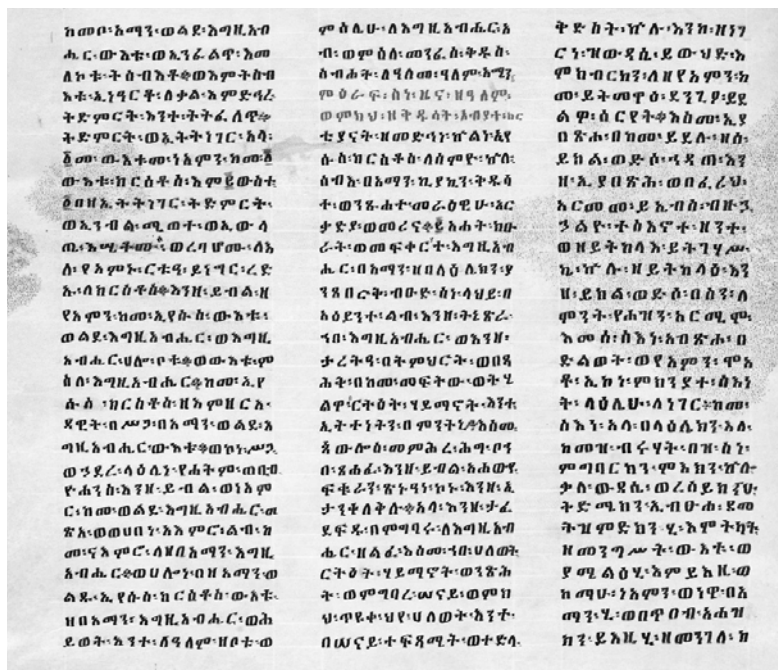 ከመቦ፡አማን፡ወልደ፡እግዚአብ
ሔር፡ውእቱ፡ወኢንፈልዋ፡እመ
ለኮቱ፡ትስብእቶ፡ወእምትስብ
እቱ፡ኢነዓርቆ፡ለቃል፡እምድኅረ
ትድምርት፡እንተ፡ትትፌለጥ፡
ትድምርት፡ወኢትትነገር፡አላ፡
፩መ፡ውእቱመ፡ነአምን፡ከመ፡፩
ውእቱ፡ክርስቶስ፡እም፪ውስተ
፩በዘኢትትነገር፡ትድምርት፡
ወኢንብል፡ሚጠተ፡ወኢውላ
ጤ፡ወረባሆሙ፡ለእ
ለ፡የአምኑ፡ርቱዓ፡ይነግር፡ረድ
ኡ፡ለክርስቶስ፡እንዘ፡ይብል፡ዘ
የአምን፡ከመ፡ኢየሱስ፡ውእቱ፡
ወልደ፡እግዚአብሔር፡ወእግዚ
አብሔር፡ሀሎ፡ቦቱ፡ወውእቱ፡ም
ስለ፡እግዚአብሔር፡ከመ፡ኢየ
ሱስ፡ክርስቶስ፡ዘእምዘርአ፡
ዳዊት፡በሥጋ፡በአማን፡ወልደ፡እ
ግዚአብሔር፡ውእቱ፡ወኮነ፡ሥጋ
ወኀደረ፡ላዕሌነ፡የሐትም፡ወቢበ
ዮሐንስ፡እንዘ፡ይብል፡ወነአም
ር፡ከመ፡ወልደ፡እግዚአብሔር፡መ
ጽአ፡ወወሀበነ፡አእምሮ፡ልብ፡ከ
መ፡ናእምሮ፡ለዘበአማን፡እግዚ
አብሔር፡ወሀሎነ፡በዘአማን፡ወ
ልዱ፡ኢየሱስ፡ክርስቶስ፡ውእቱ፡
ዘበአማን፡እግዚአብሔር፡ወሕ
ይወት፡እንተ፡ለዓለም፡ዘቦቱ፡ወ
ምስሌሁ፡ለእግዚአብሔር፡አ
ብ፡ወምስለ፡መንፈስ፡ቅዱስ፡
ስብሐት፡ለዓለመ፡ዓለም፡አሜን፡
ምዕራፍ፡ስነ፡ዜና፡ዘዓለም፡
ወምክህ፡ዘቅዱሳት፡አብያተ፡ክር
ቲያናት፡ዘመድኀኑ፡ኵልነ፡ኢየ
ሱስ፡ክርስቶስ፡ለስምየ፡ኵሉ፡
ስብእ፡በአማን፡ኪያኪን፡ቅዱሳ
ት፡ወንጹሐተ፡መራዕዊሁ፡አር
ታድያ፡ወመሪና፡፪አሐት፡ክቡ
ራት፡ወመፍቀርተ፡እግዚአብ
ሔር፡በአማን፡ዘበላዕሌክን፡ያ
ንጸበርቅ፡ብዑድ፡ስነ፡ላህይ፡በ
አዕይንተ፡ልብ፡እንዘ፡ትኔጽራ፡
ኀበ፡እግዚአብሔር፡ወእንዘ፡
ታረትዓ፡በትምህርት፡ወበጻ
ሕት፡በከመ፡መፍትው፡ወትሄ
ልዋ፡ርትዕት፡ሃይማኖት፡እንተ፡
ኢትተነትን፡በምንትኒ፡እስመ፡
ጳውሎስ፡መምሕረ፡ሕግ፡ቦነ
በ፡ጸሐፈ፡እንዘ፡ይብል፡አሐውየ
ፍቁራን፡ጽኑዓነ፡ኩኑ፡እንዘ፡ኢ
ታንቀለቅሉ፡አላ፡እንዘ፡ታፈ
ደፍዱ፡በምግባሩ፡ለእግዚአብ
ሔር፡ዘልፈ፡እስመ፡ኀበ፡ሀለወት
ርትዕት፡ሃይማኖት፡ወንጽሕ
ት፡ወምግባረ፡ሠናይ፡ወምክ
ህ፡ጥዩቀ፡ህየ፡ሀለወት፡እንተ፡
በሠናይ፡ተፍጻሚት፡ወተድላ፡
ቅድስት፡ኵሉ፡እንከ፡ዘነገ
ርነ፡ዝውዳሴ፡ይውህድ፡እ
ምክብርክን፡ለዘየአምን፡ከ
መ፡ይትመዋዕ፡ደንጊፆ፡ይደ
ልዋ፡ስርየት፡እስመ፡ኢያ
በጽሐ፡በከመ፡ይደሉ፡ዘሰ፡
ይክል፡ወድሶ፡ኅዳጠ፡እን
ዘ፡ኢያበጽሕ፡ወበፈሪህ፡
አርመመ፡ይኤብስ፡ብዙኃ
ኃልዮ፡ተስእኖተ፡ዘንተ፡
ወዘይትከላእ፡ይትገሃሥ፡
ኬ፡ኵሉ፡ዘይትከላዕ፡እን
ዘ፡ይክል፡ወድሶ፡በስን፡ለ
ምንት፡የሐዝን፡አርሚሞ፡
እመሰ፡ስእነ፡አብጽሖ፡በ
ድልወት፡ወየአምን፡ሞአ
ቶ፡ኢኮነ፡ምክንያተ፡ስእነ
ት፡ላዕሌሁ፡ለነገር፡ከመ፡
ስእን፡አላ፡በላዕሌክን፡እለ፡
ከመዝ፡ብሩሃት፡በዝ፡ስነ፡
ምግባርክን፡ምእክን፡ኵሎ
ቃለ፡ውዳሴ፡ወረሰይክናሁ፡
ትድሚክን፡ኢብዑሐ፡ደመ
ትዝምድክን፡ሂ፡እምትካት
ዘመንግሥት፡ውእቱ፡ወ
ያሜልዕሂ፡እምይእዜ፡ወ
ከማሁ፡ነአምን፡ወነዋ፡በአ
ማን፡ሂ፡ወበጥዐብ፡አሐዝ
ክን፡ይእዜሂ፡ዘመንገለ፡ከ